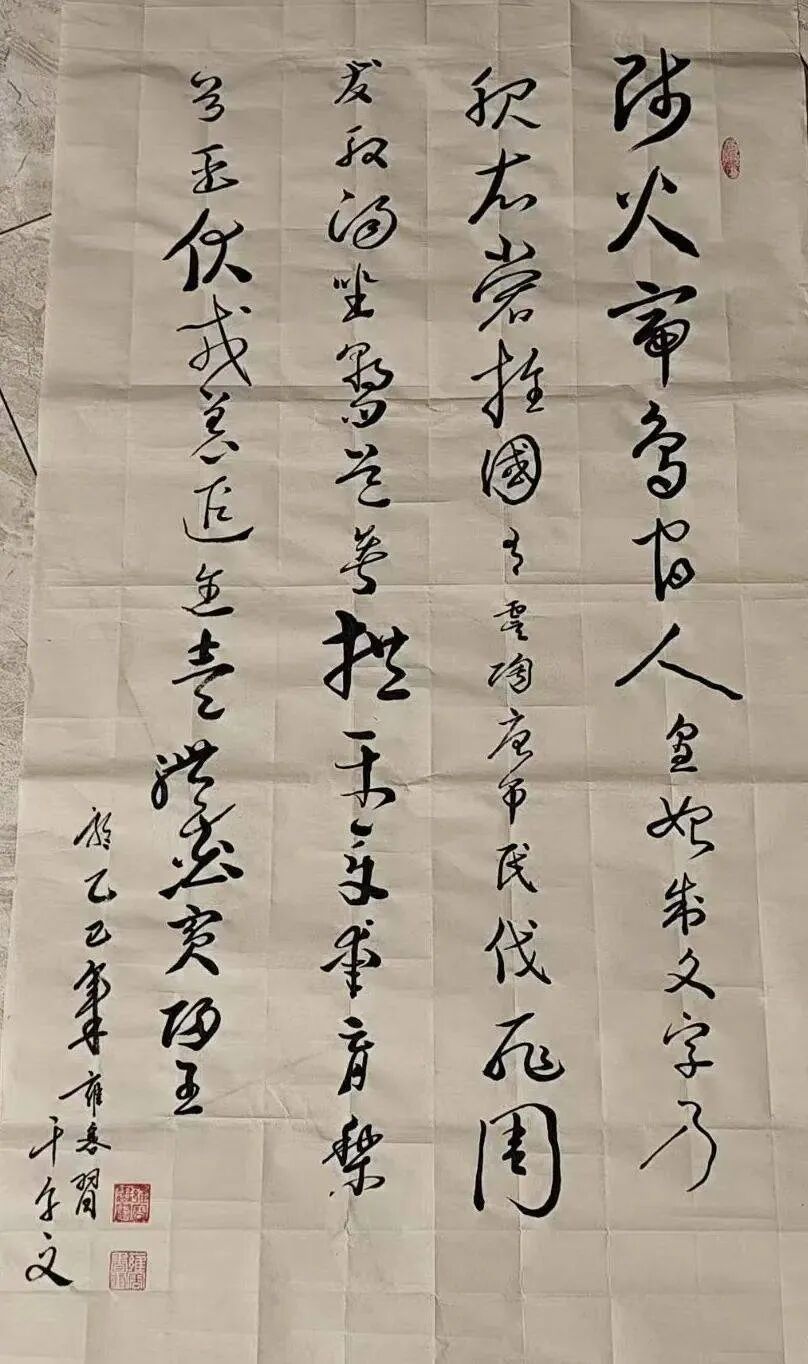 师火帝鸟官人皇始制文字乃
服衣裳推國有虞陶唐吊民伐罪周
发殷汤坐朝问道垂拱平章爱育黎
首臣伏戎羌遐迩壹体率宾归王
乙巳年雍习
千字文